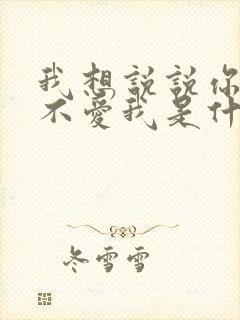 我想説説你
不愛我是什
冬雪雪